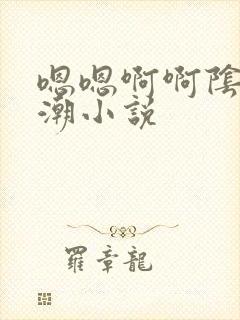 嗯嗯啊啊陰
潮小説
羅章龍